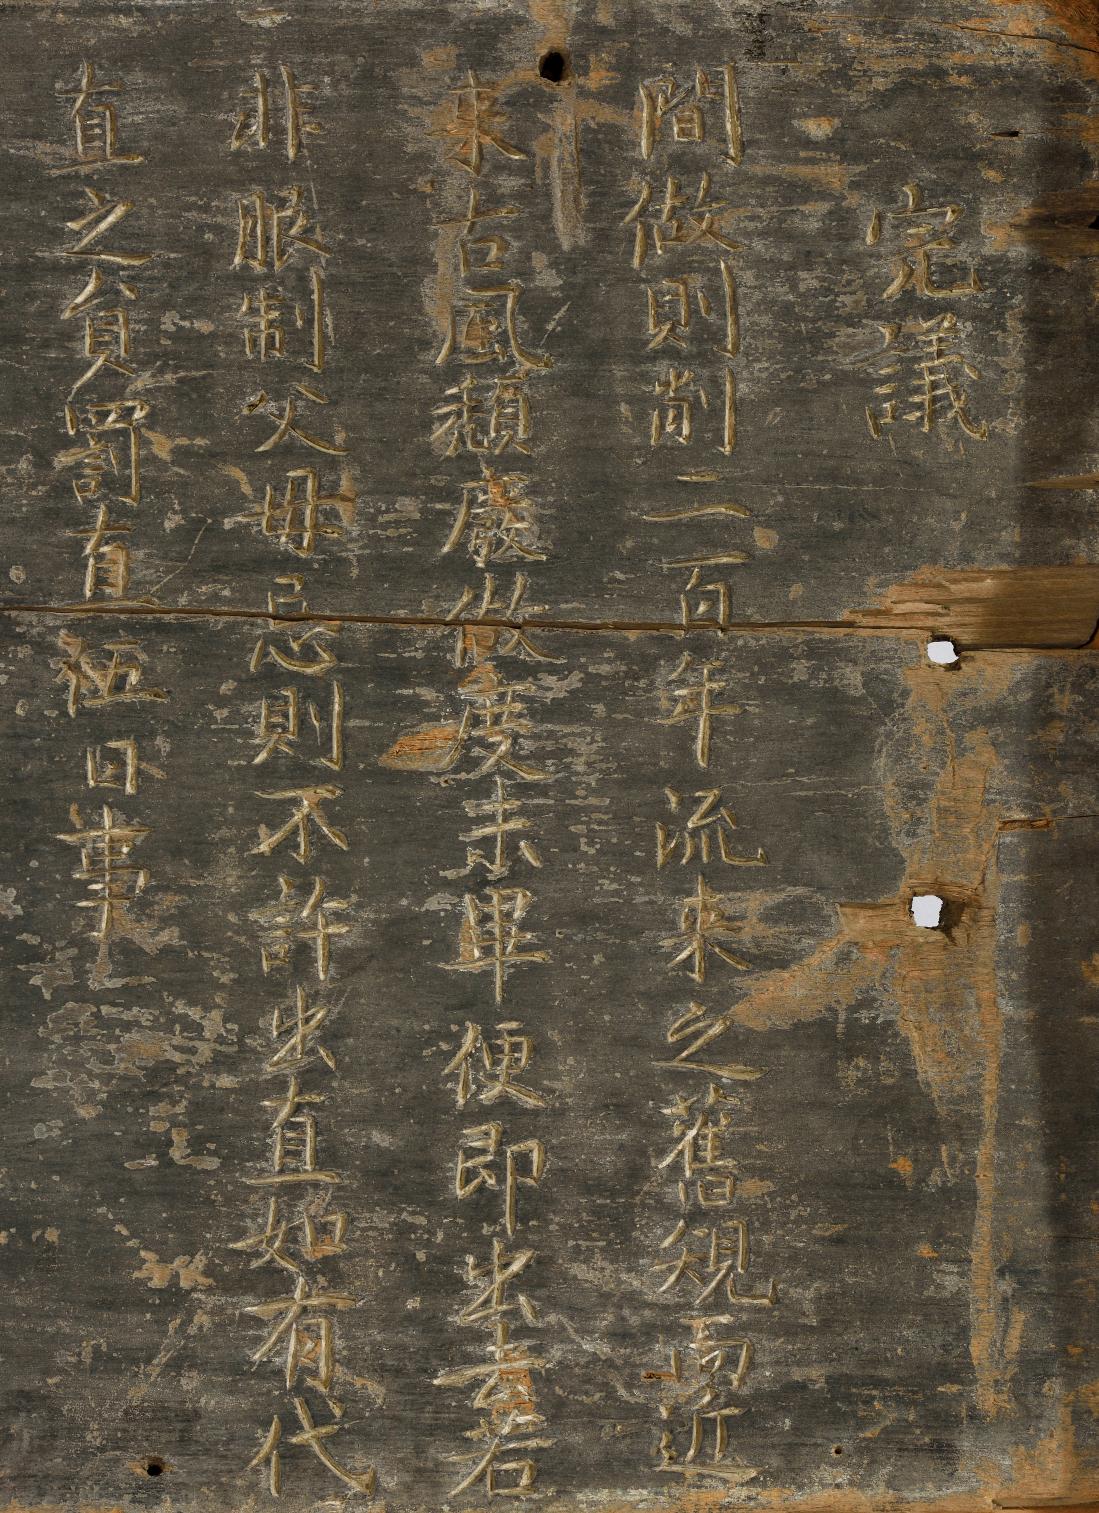 完議
間倣則削二百年流來之舊規而近
來古風頹廢倣度未畢便卽出去若
非服制父母忌則不許出直如有代
直之員罰直伍日事